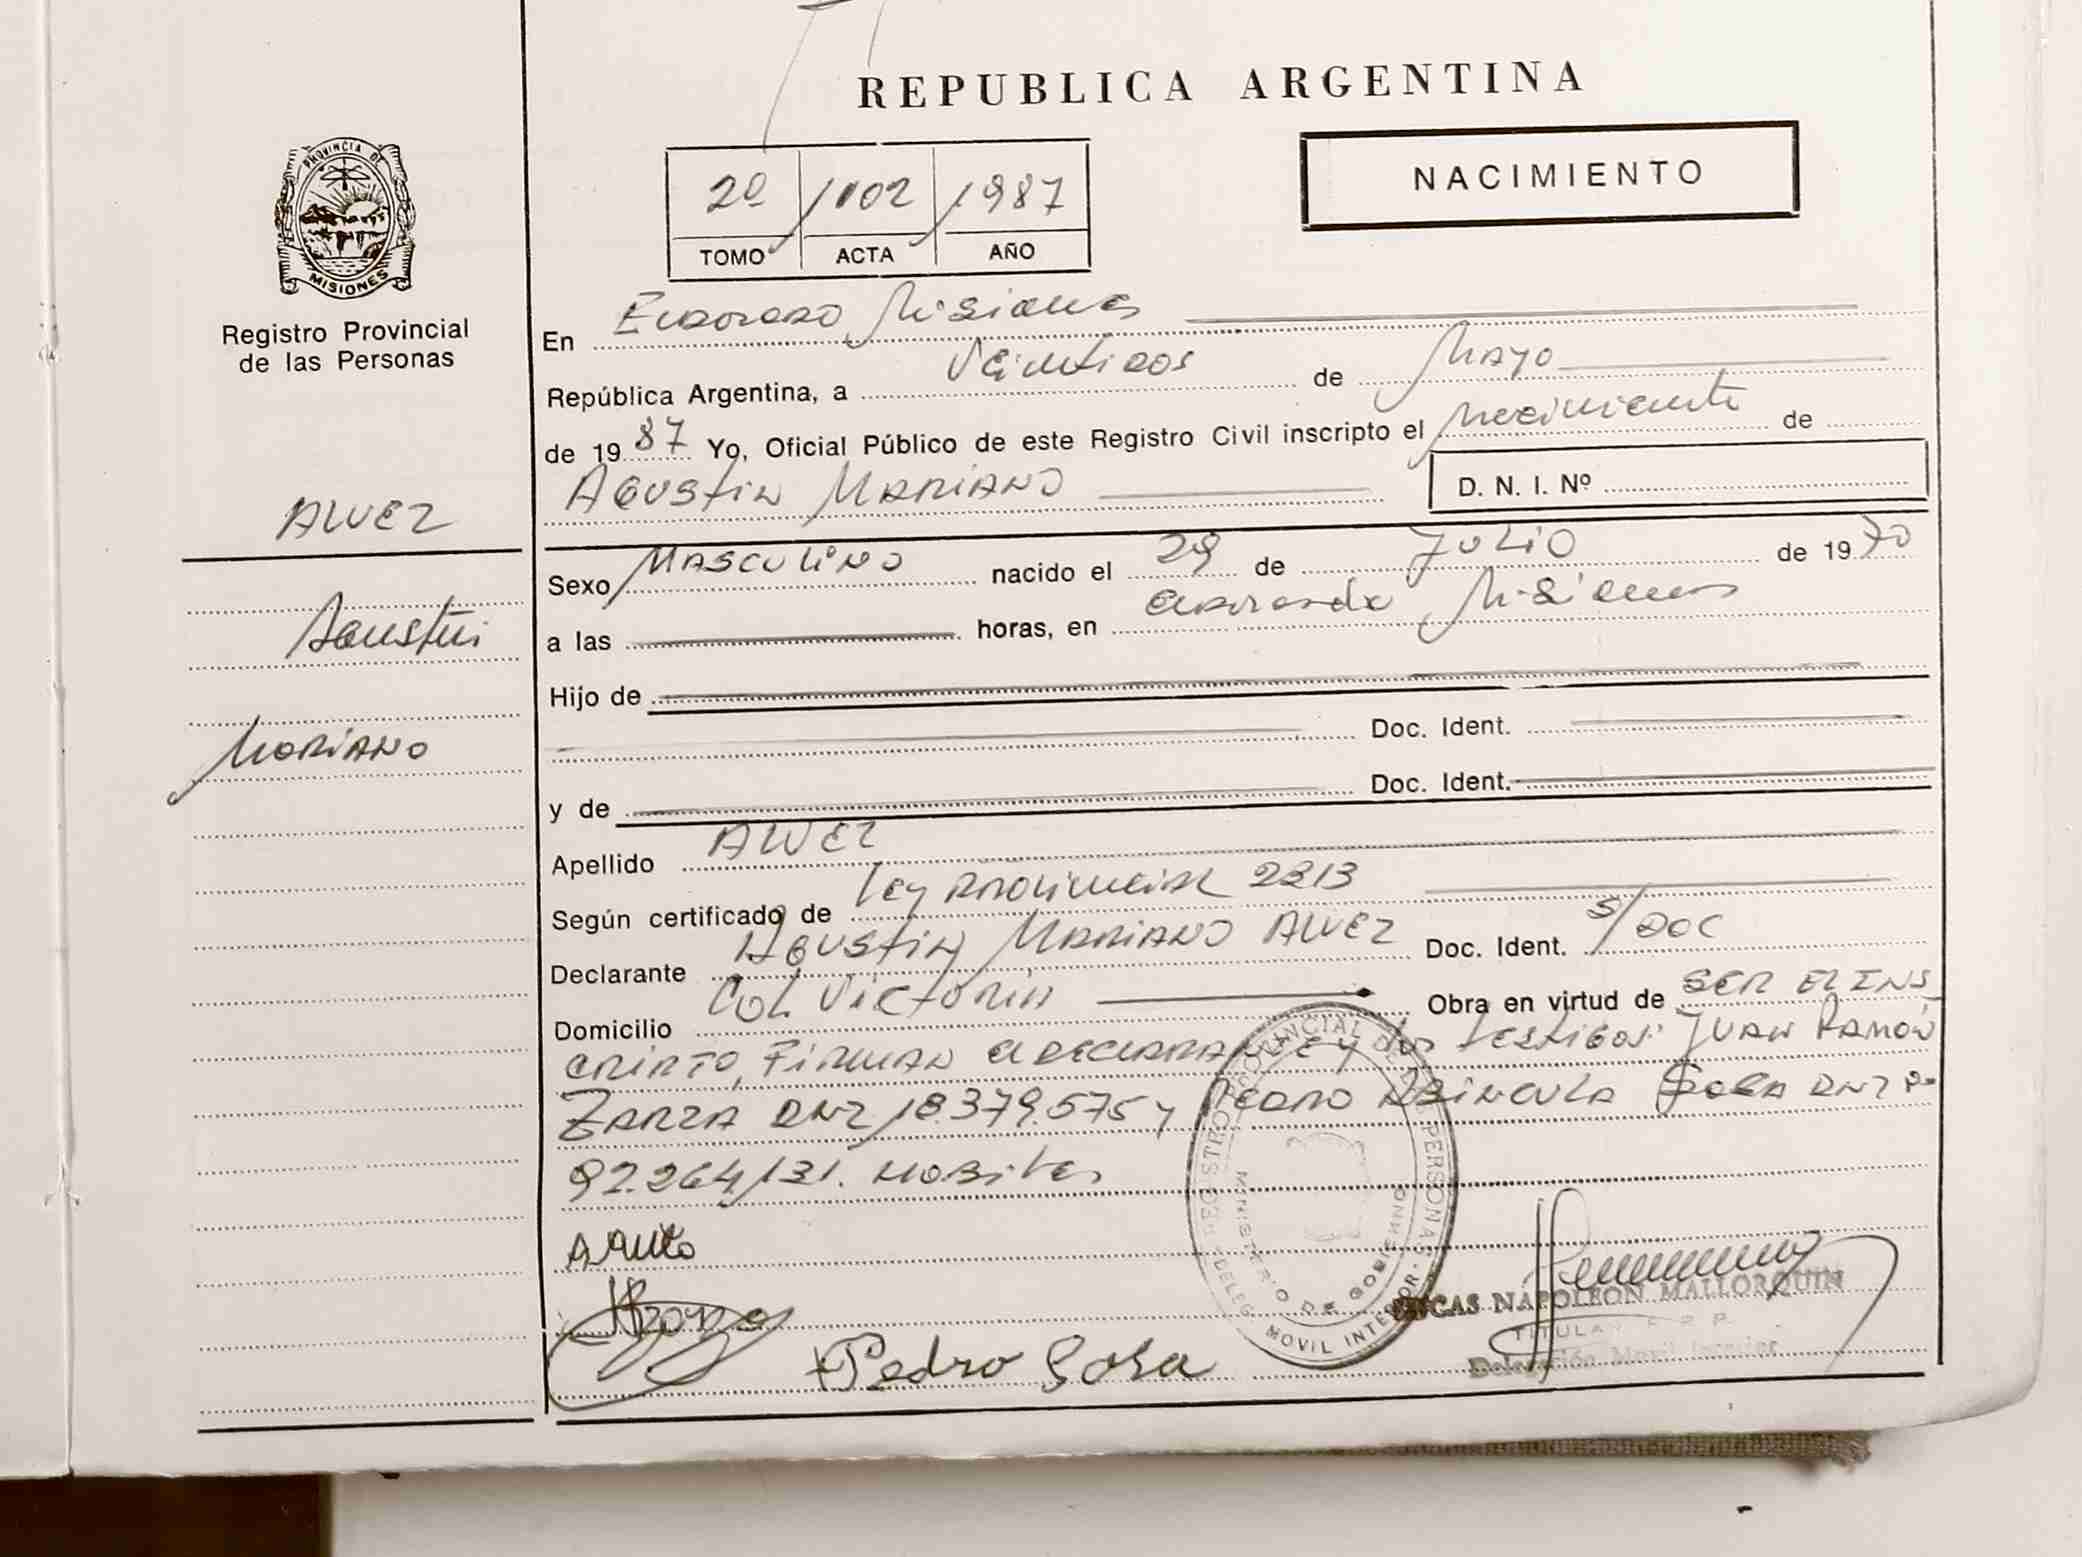 REPUBLICA ARGENTINA
PROVINCIA DE
MISIONES
Registro Provincial
de las Personas
2º 1002 1987
TOMO ACTA AÑO
NACIMIENTO
En Eldorado Misiones
República Argentina, a Veintidos de Mayo
de 1987 Yo, Oficial Público de este Registro Civil inscripto el nacimiento de
Agustin Mariano D. N. I. Nº
Alvez
Agustin
Mariano
Sexo Masculino nacido el 29 de Julio de 1970
a las horas, en Eldorado Misiones
Hijo de
Doc. Ident.
y de Doc. Ident.
Apellido Alvez
Según certificado de Ley Provincial 2313
Declarante Agustin Mariano Alvez Doc. Ident. S/DOC
Domicilio Col Victoria Obra en virtud de SER EL INS
CRIPTO, Firman el DECLARANTE y dos testigos: Juan Ramón
Zarza DNI 18.379.575 y Pedro Sosa DNI
92.264.131.
REGISTRO PROVINCIAL DE LAS PERSONAS
MINISTERIO DE GOBIERNO
DELEG. MOVIL INTERIOR
Pedro Sosa
LUCAS NAPOLEON MALLORQUIN
TITULAR R P P
Delegación Movil Interior